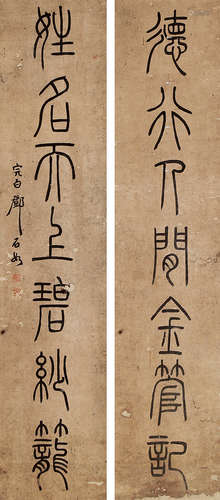 德行人間金管記
姓名天上碧紗籠
完白鄧石如